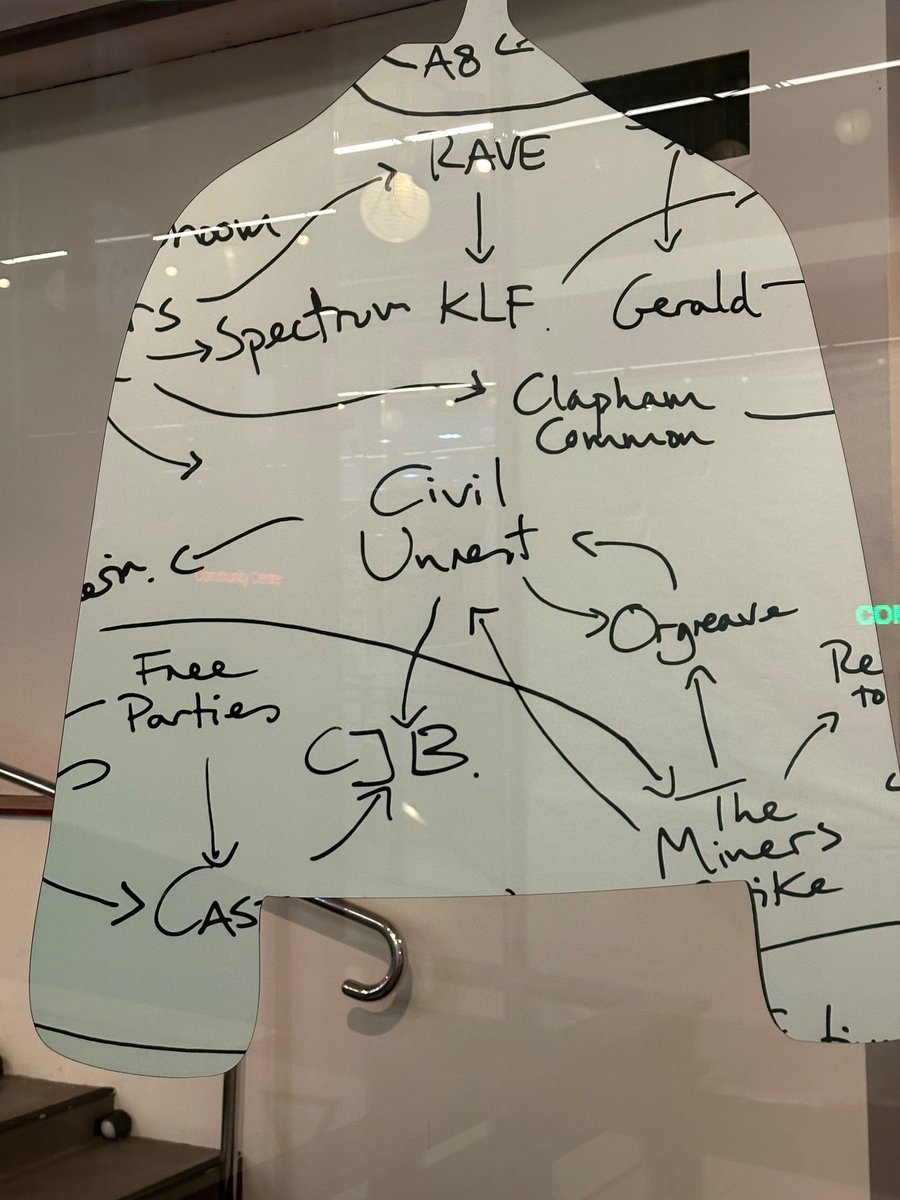 A8
RAVE
room
Spectrum KLF.
Gerald
Clapham
Common
Civil
Unrest
Community Centre
Orgreave
Free
Parties
CJB.
The
Miners